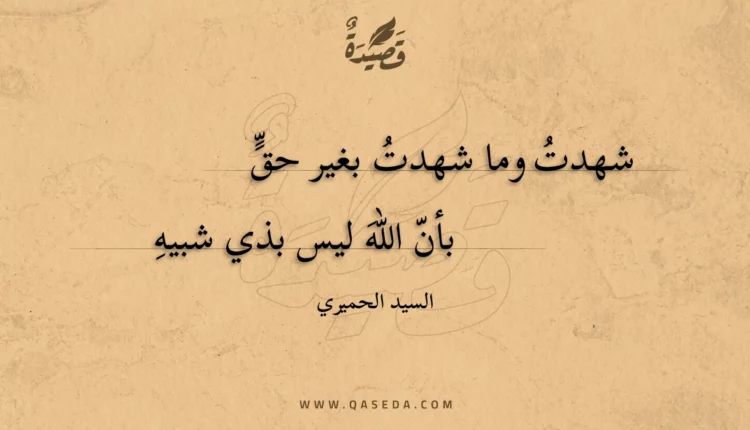 قَصِيدَةٌ
شهدتُ وما شهدتُ بغير حقٍّ
بأنّ اللهَ ليس بذي شبيهِ
السيد الحميري
WWW.QASEDA.COM